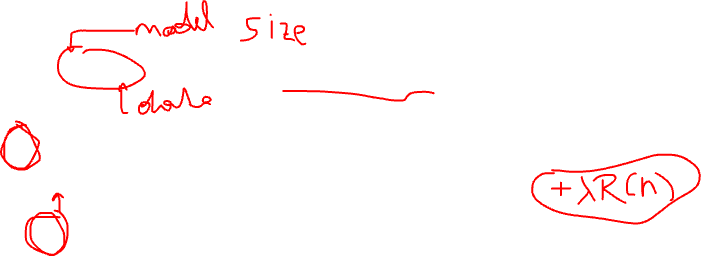 model size
data
+λR(h)